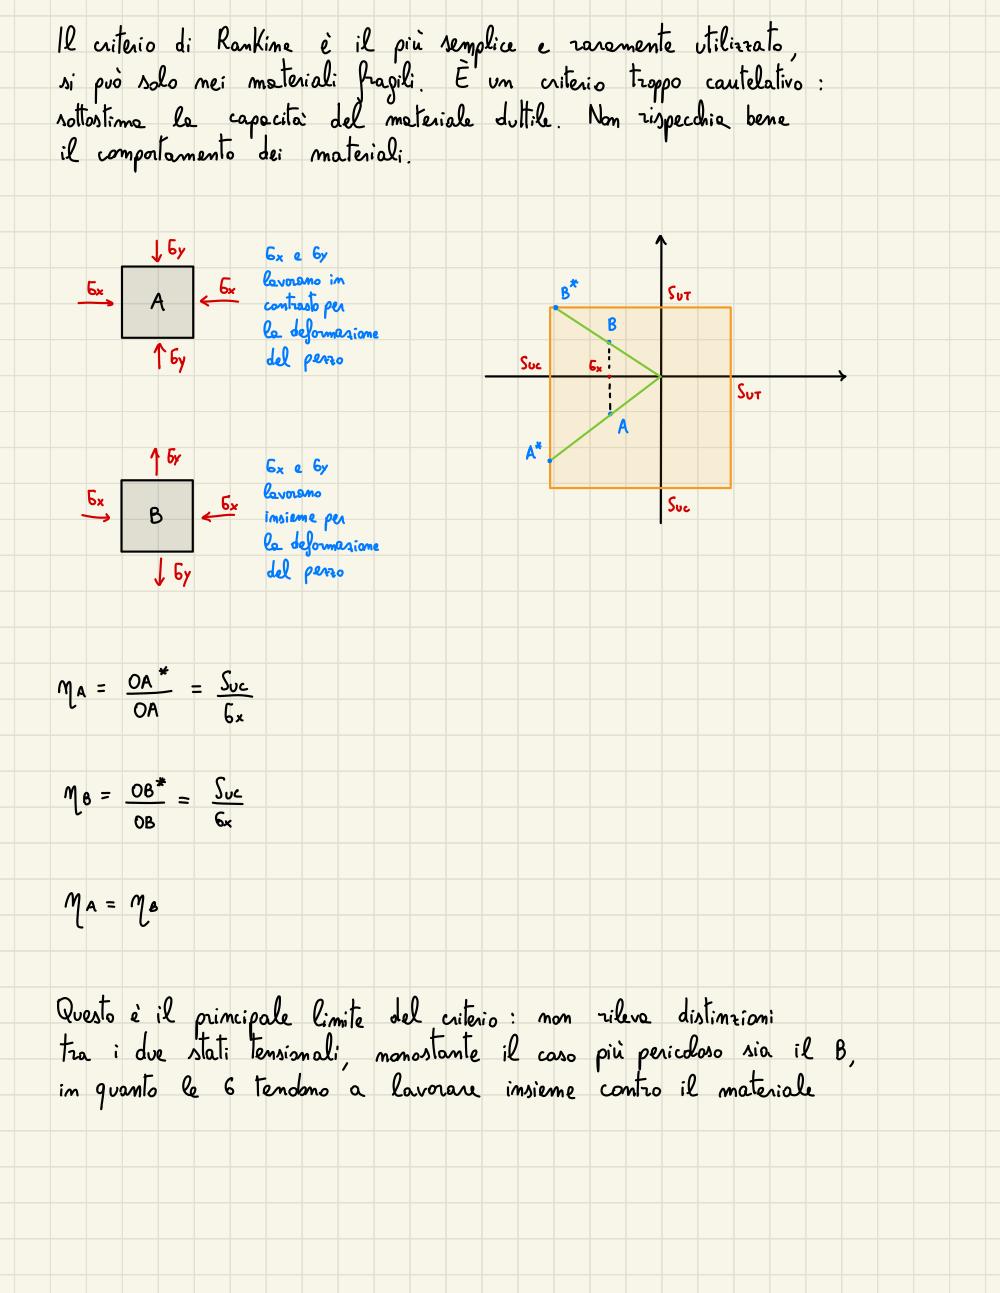 Il criterio di Rankine è il più semplice e raramente utilizzato,
si può solo nei materiali fragili. È un criterio troppo cautelativo :
sottostima la capacità del materiale duttile. Non rispecchia bene
il comportamento dei materiali.
σy
σx A σx
σy
σx e σy
lavorano in
contrasto per
la deformazione
del pezzo
B*
SUT
B
SUC
σx
SUT
A
A*
SUC
σy
σx B σx
σy
σx e σy
lavorano
insieme per
la deformazione
del pezzo
ηA = OA* / OA = SUC / σx
ηB = OB* / OB = SUC / σx
ηA = ηB
Questo è il principale limite del criterio : non rileva distinzioni
tra i due stati tensionali, nonostante il caso più pericoloso sia il B,
in quanto le σ tendono a lavorare insieme contro il materiale